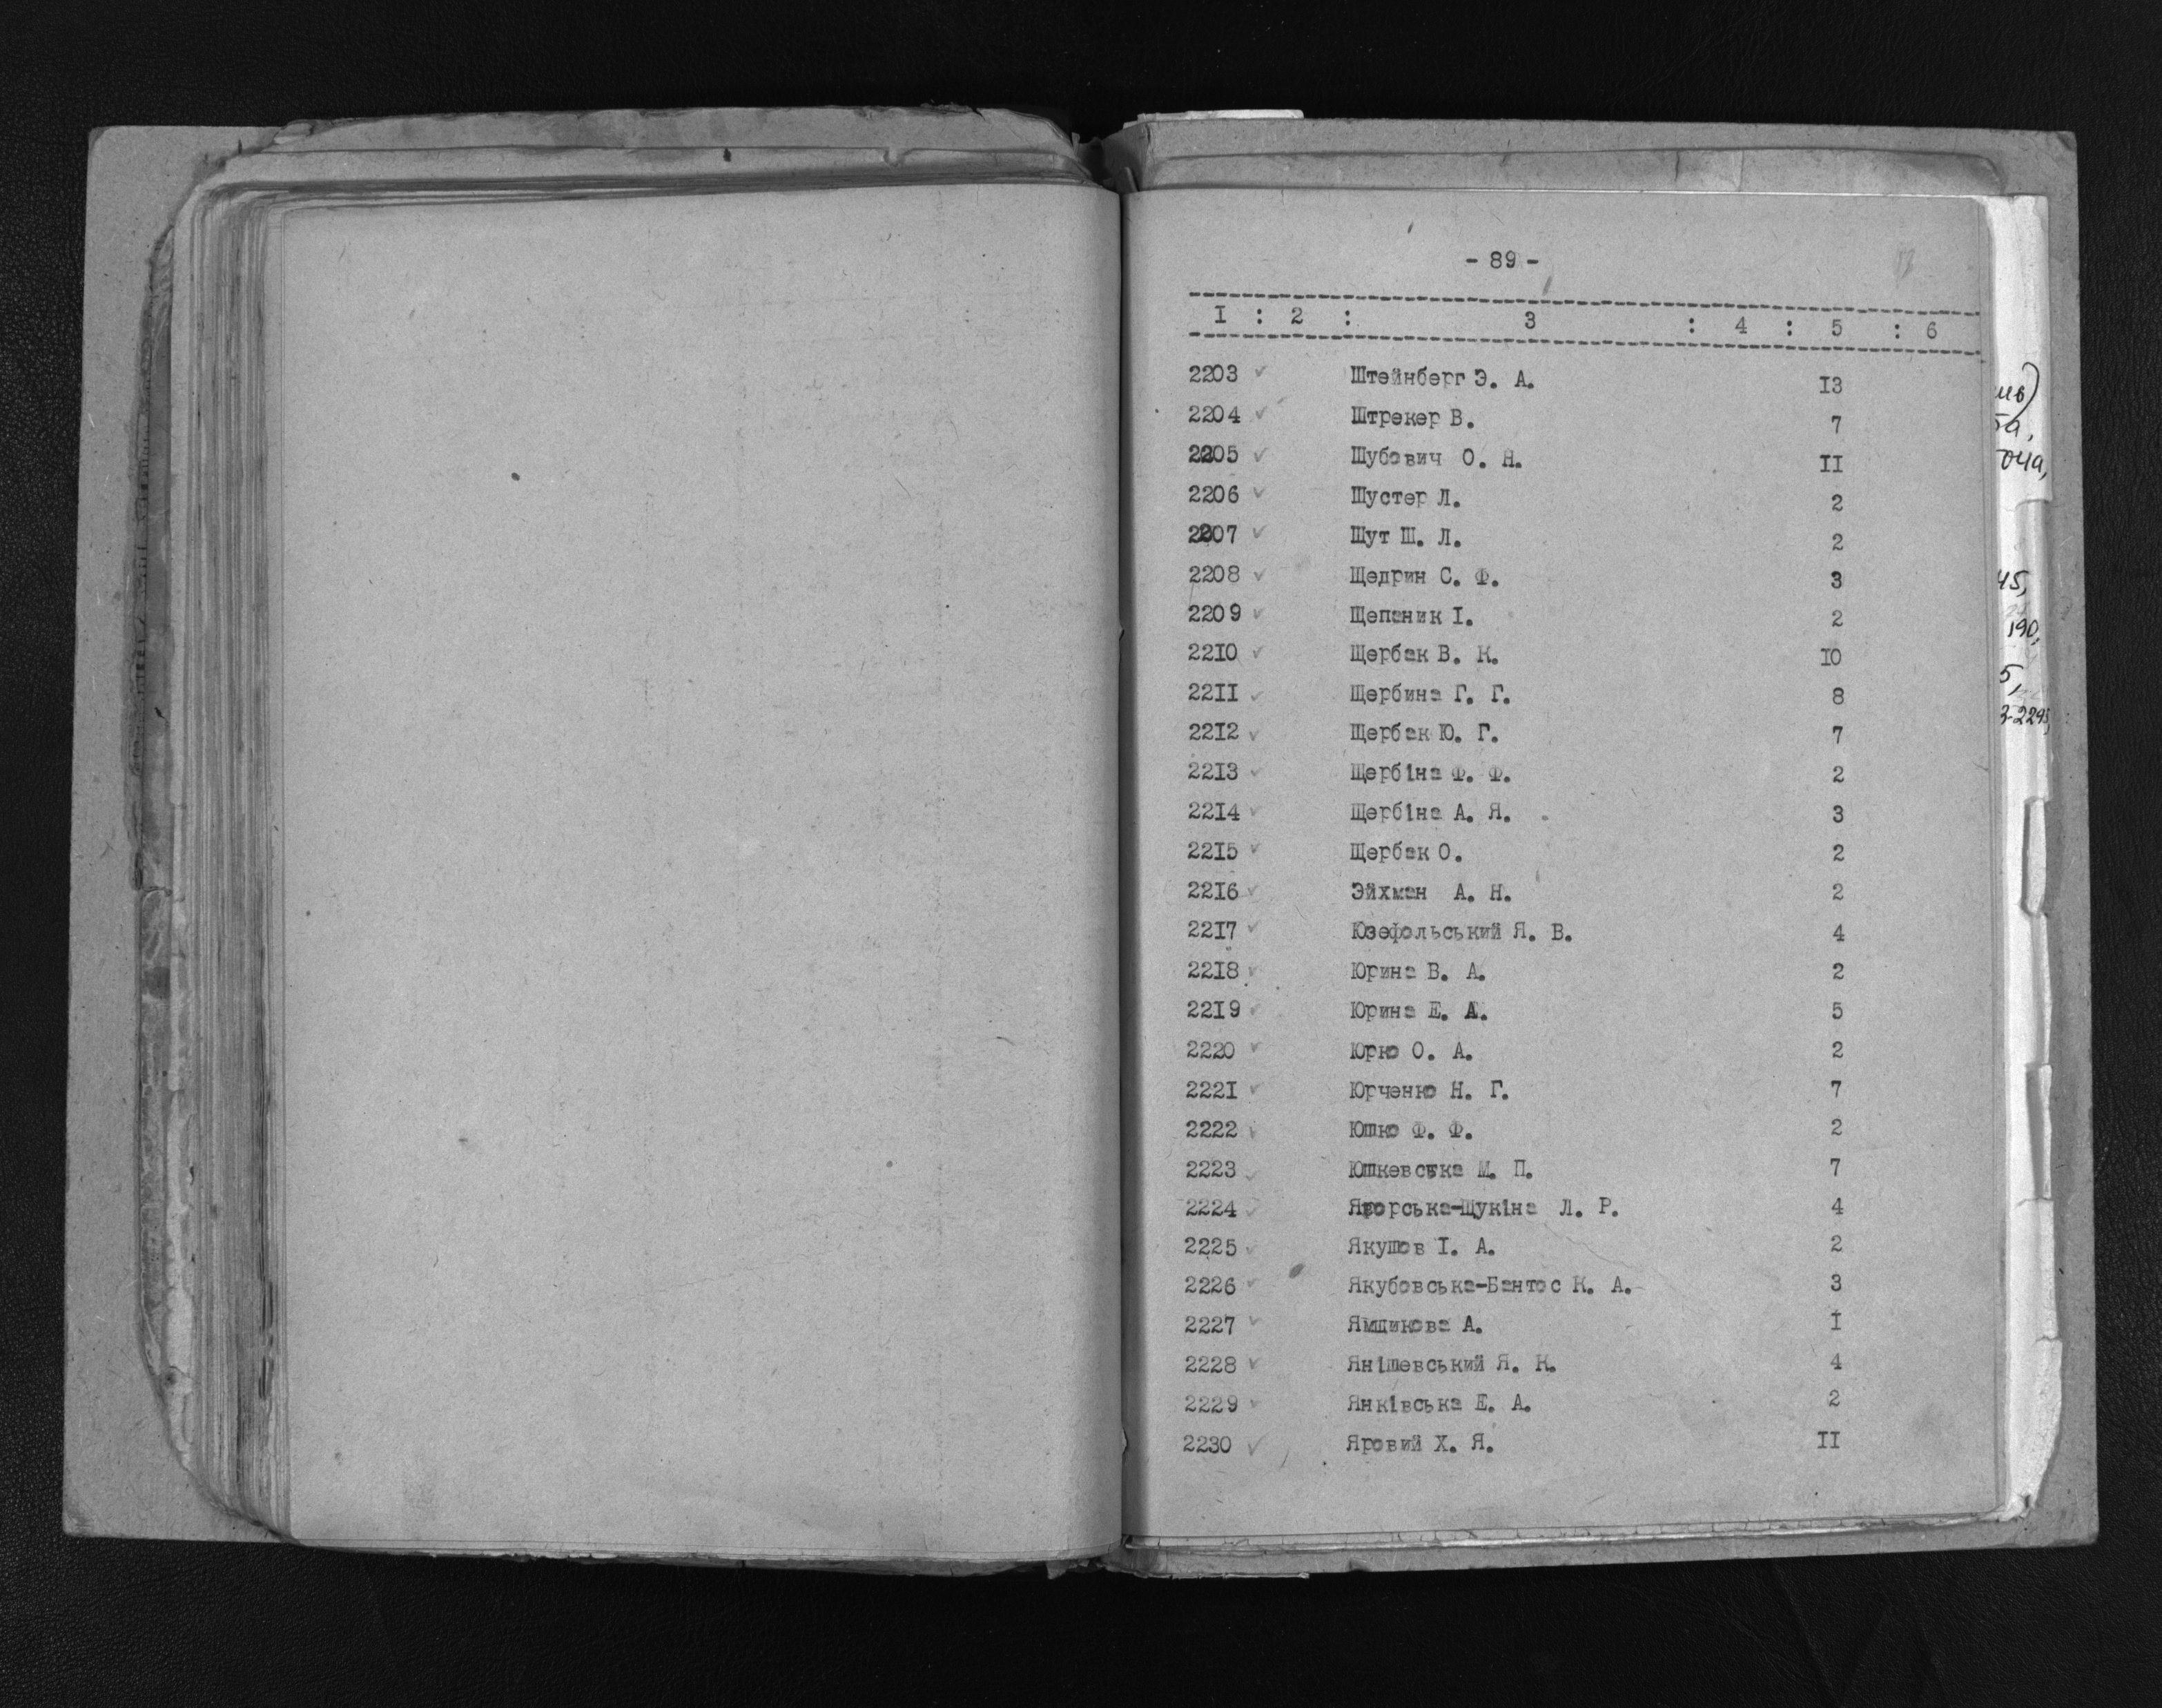 - 89 -
I : 2 : 3 : 4 : 5 : 6
2203 ✓ Штейнберг Э. А. I3
2204 ✓ Штрекер В. 7
2205 ✓ Шубович О. Н. II
2206 ✓ Шустер Л. 2
2207 ✓ Шут Ш. Л. 2
2208 ✓ Щедрин С. Ф. 3
2209 ✓ Щепаник І. 2
22I0 ✓ Щербак В. К. I0
22II ✓ Щербина Г. Г. 8
22I2 ✓ Щербак Ю. Г. 7
22I3 ✓ Щербіна Ф. Ф. 2
22I4 ✓ Щербіна А. Я. 3
22I5 ✓ Щербак О. 2
22I6 ✓ Эйхман А. Н. 2
22I7 ✓ Юзефольський Я. В. 4
22I8 ✓ Юрина В. А. 2
22I9 ✓ Юрина Е. А. 5
2220 ✓ Юрко О. А. 2
222I ✓ Юрченко Н. Г. 7
2222 ✓ Юшко Ф. Ф. 2
2223 ✓ Юшкевська М. П. 7
2224 ✓ Яворська-Щукіна Л. Р. 4
2225 ✓ Якушов І. А. 2
2226 ✓ Якубовська-Бантос К. А. 3
2227 ✓ Ямщикова А. I
2228 ✓ Янішевський Я. К. 4
2229 ✓ Янківська Е. А. 2
2230 ✓ Яровий Х. Я. II
45,
190,
5,
3-2295,